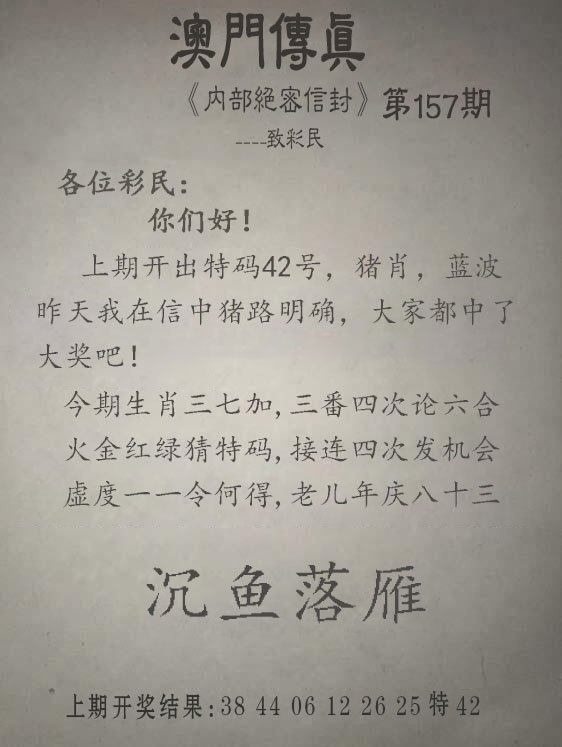 澳門傳眞
《内部絕密信封》第157期
----致彩民
各位彩民:
你们好!
上期开出特码42号，猪肖，蓝波
昨天我在信中猪路明确，大家都中了
大奖吧!
今期生肖三七加,三番四次论六合
火金红绿猜特码,接连四次发机会
虚度一一令何得,老儿年庆八十三
沉鱼落雁
上期开奖结果:38 44 06 12 26 25 特 42